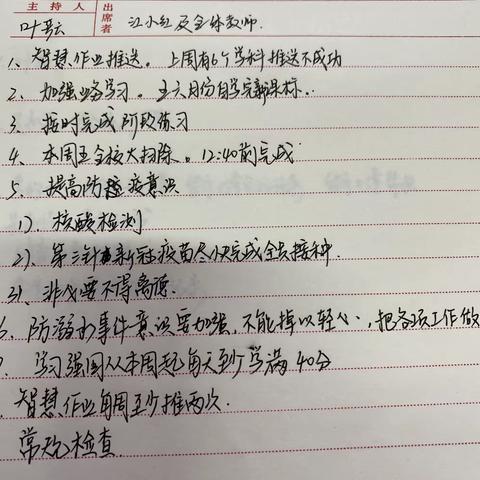 主 持 人 出席者
叶 江小红及全体教师.
1、智慧作业推送。上周有6个学科推送不成功
2、加强业务学习。五六月份自学完新课标..
3、按时完成阶段练习
4、本周五全校大扫除。12:40前完成
5、提高防控疫意识
1)、核酸检测
2)、第三针新冠疫苗尽快完成全员接种.
3)、非必要不得离
防溺水事件意识要加强,不能掉以轻心,把各项工作做
学习强国从本周起每天至少学满40分
智慧作业每周至少推两次.
常规检查.